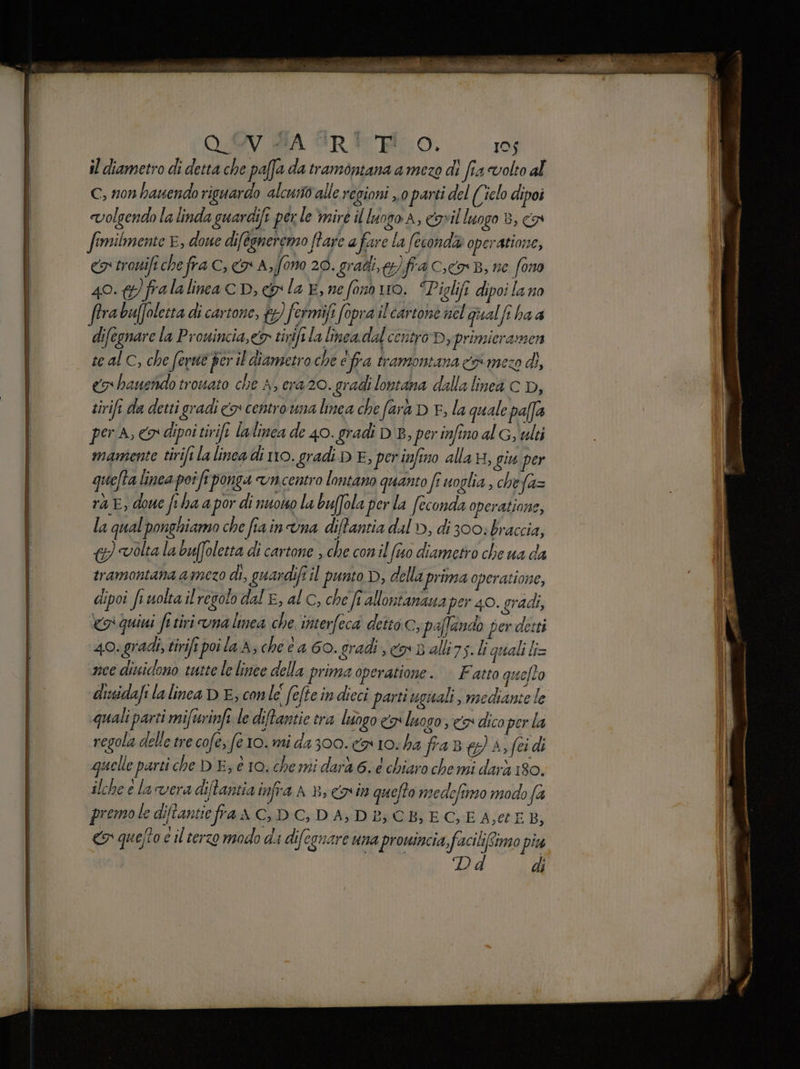 QVARTO. 105
il diametro di detta che paſſa da tramontana a mezo dì ſia volto al
C, non hauendo riguardo alcuno alle regioni, o parti del Cielo dipoi
volgendo la linda guardiſi per le mire il luogo A, & il luogo B, &
ſimilmente E, doue diſegneremo ſtare a fare la ſeconda operatione,
& trouiſi che fra C, & A, ſono 20. gradi, & fra C, & B, ne ſono
40. & fra la linea C D, & la E, ne ſono 110. Pigliſi dipoi la no
ſtra buſſoletta di cartone, & fermiſi ſopra il cartone nel qual ſi ha a
diſegnare la Prouincia, & tiriſi la linea dal centro D, primieramen
te al C, che ſerue per il diametro che è fra tramontana & mezo dì,
& hauendo trouato che A, era 20. gradi lontana dalla linea C D,
tiriſi da detti gradi & centro una linea che farà D F, la quale paſſa
per A, & dipoi tiriſi la linea de 40. gradi D B, per inſino al G, ulti
mamente tiriſi la linea di 110. gradi D E, per inſino alla H, giu per
queſta linea poi ſi ponga vn centro lontano quanto ſi uoglia, che ſa=
rà E, doue ſi ha a por di nuouo la buſſola per la ſeconda operatione,
la qual ponghiamo che ſia in vna diſtantia dal D, di 300. braccia,
& volta la buſſoletta di cartone, che con il ſuo diametro che ua da
tramontana a mezo dì, guardiſi il punto D, della prima operatione,
dipoi ſi uolta il regolo dal E, al C, che ſi allontanaua per 40. gradi,
& quiui ſi tiri vna linea che interſeca detto C, paſſando per detti
40. gradi, tiriſi poi la A, che è a 60. gradi, & B alli 75. li quali li=
nee diuidono tutte le linee della prima operatione. Fatto queſto
diuidaſi la linea D E, con le ſeſte in dieci parti uguali, mediante le
quali parti miſurinſi le diſtantie tra luogo & luogo, & dico per la
regola delle tre coſe, ſe 10. mi da 300. & 10. ha fra B & A, ſei di
quelle parti che D E, è 10. che mi darà 6. è chiaro che mi darà 180.
ilche è la vera diſtantia infra A B, & in queſto medeſimo modo ſa
premo le diſtantie fra A C, D C, D A, D B, C B, E C, E A, et E B,
& queſto è il terzo modo da diſegnare una prouincia, faciliſsimo piu
Dd di